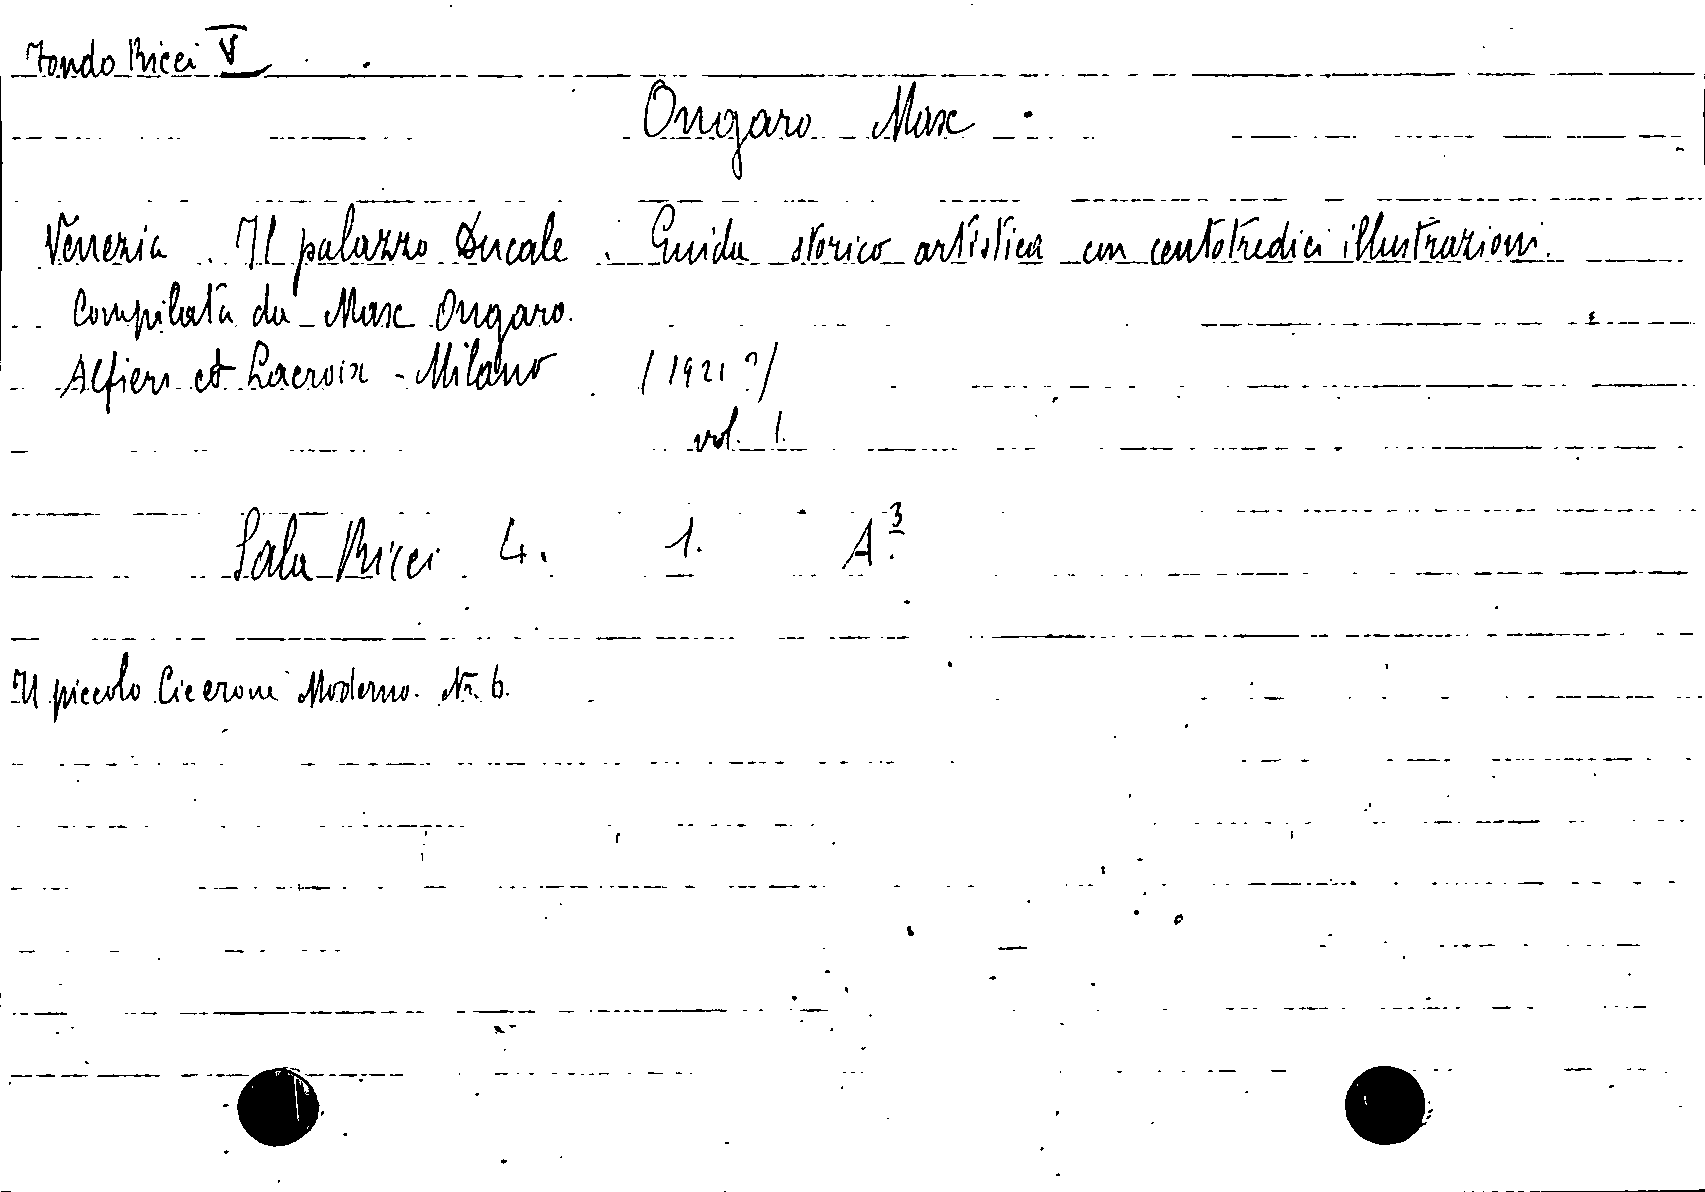 Fondo Ricci V
Ongaro Max.
Venezia. Il palazzo Ducale. Guida storico artistica con centotredici illustrazioni.
Compilata da Max Ongaro.
Alfieri et Lacroix - Milano (1921?)
vol. 1.
Sala Ricci 4. 1. A.3
Il piccolo Cicerone Moderno. Nr. 6.